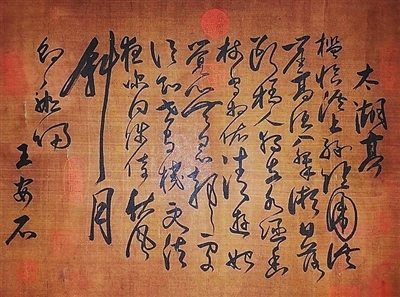 太湖亭
檻臨溪上綠陰圍溪
岸高低入翠微日落
斷橋人獨立水涵幽
樹鳥相依清遊始
覺心無累靜處
誰知世有機更待
夜深同徙倚秋風
斜月
釣船歸
王安石